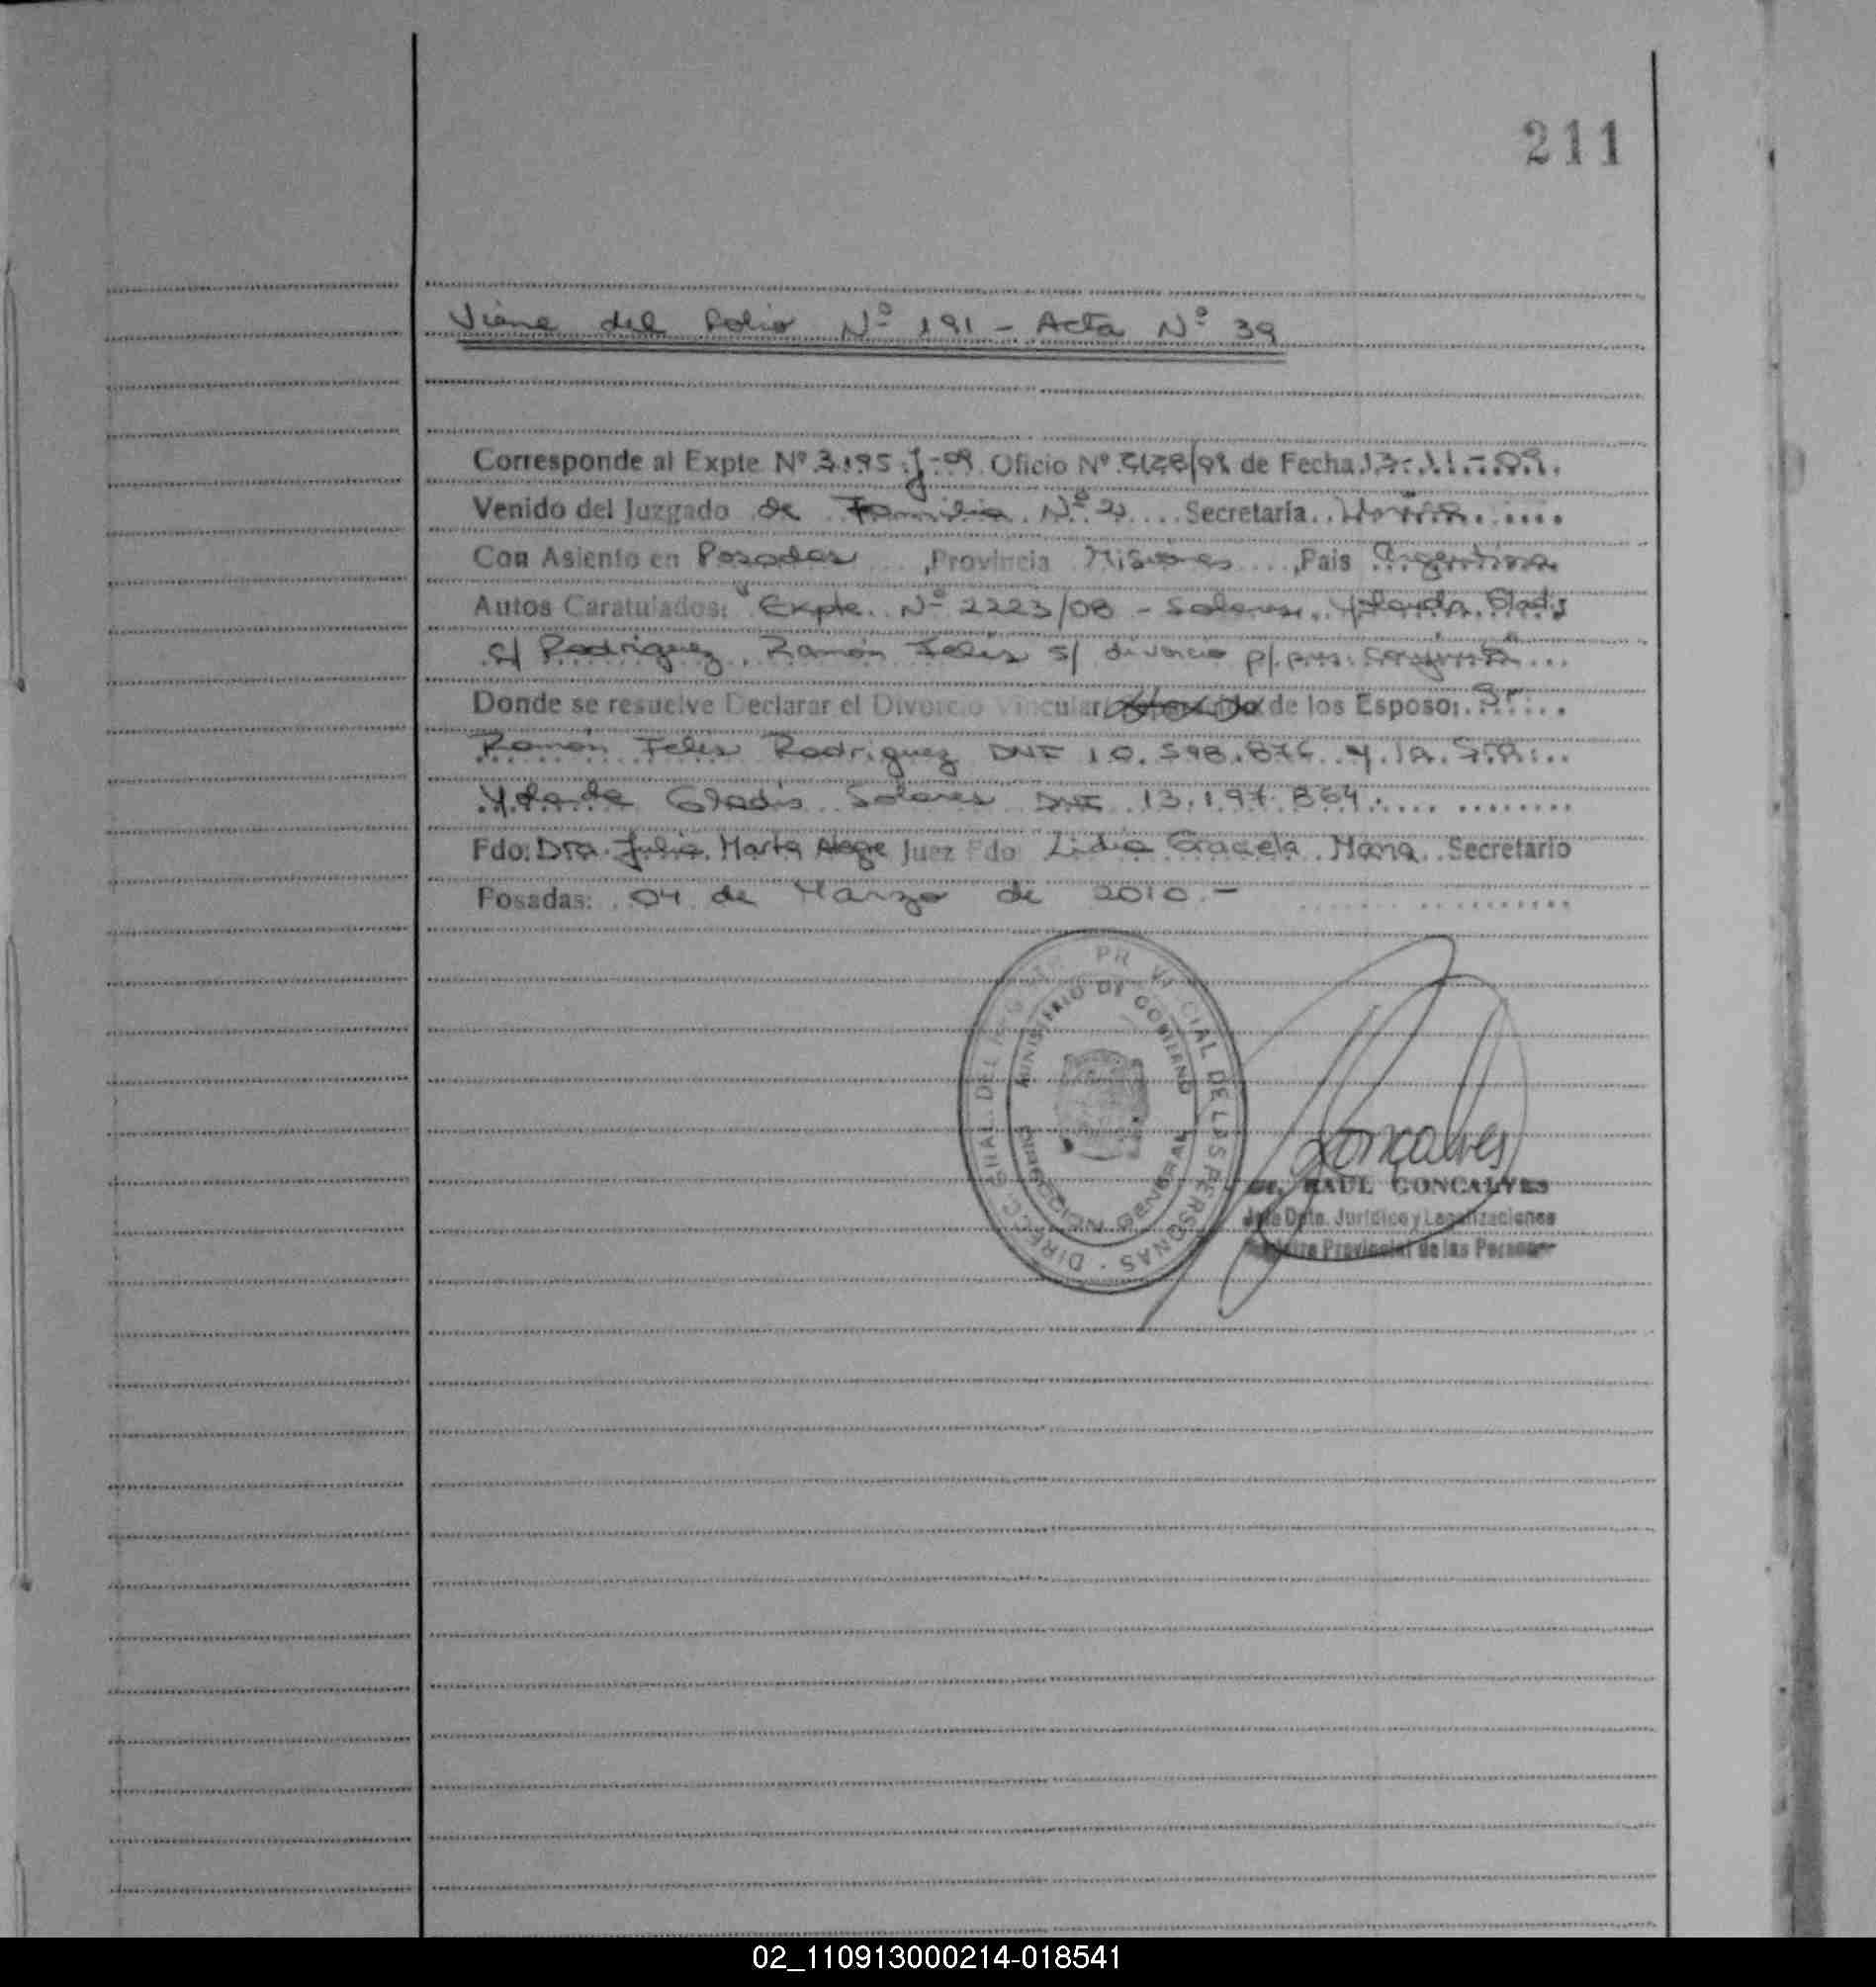 211
Viene del Folio Nº 191 - Acta Nº 39
Corresponde al Expte Nº 3195-J-09 Oficio Nº de Fecha 13-11-09.
Venido del Juzgado de Familia Nº 2 Secretaría
Con Asiento en Posadas, Provincia Misiones, Pais Argentina
Autos Caratulados: "Expte. Nº 2223/08 - Yolanda Gladis
c/ Rodriguez, Ramón Felix s/ divorcio p/ pres. conjunta"
Donde se resuelve Declarar el Divorcio Vincular de los Esposo: Sr.
Ramón Felix Rodriguez DNI 10.598.876 y la Sra.
Yolanda Gladis DNI 13.197.864.
Fdo: Dra. Julia Marta Alegre Juez Fdo Lidia Graciela Secretario
Posadas: 04 de Marzo de 2010.-
DIRECC. GRAL. DEL REG PROVINCIAL DE LAS PERSONAS
MINISTERIO DE GOBIERNO
DIRECCION GENERAL
Goncalves
RAUL GONCALVES
Jefe Dpto. Jurídico y Legalizaciones
Registro Provincial de las Personas
02_110913000214-018541